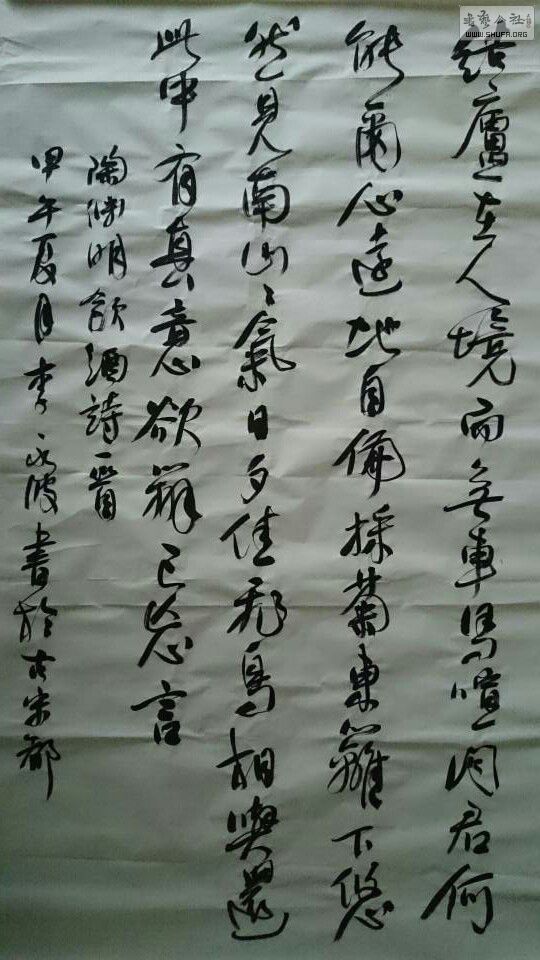 結廬在人境而無車馬喧問君何
能爾心遠地自偏採菊東籬下悠
然見南山々氣日夕佳飛鳥相與還
此中有真意欲辨已忘言
陶渊明飲酒詩一首
甲午夏月李永波書於古宋都
書藝公社
WWW.SHUFA.ORG